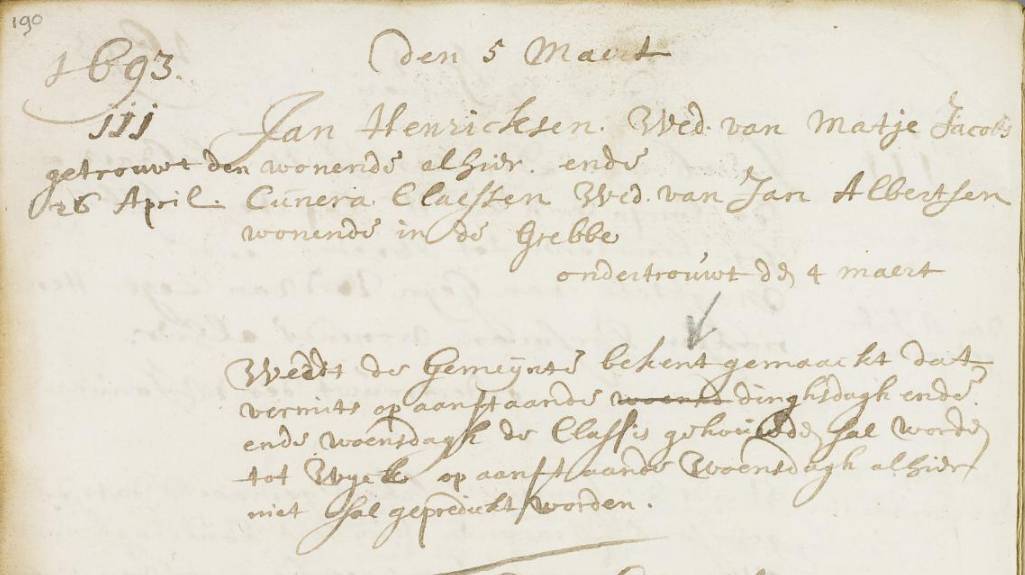 190
1693.
den 5 Maert
III
Jan Henricksen. Wed. van Matje Jacobs
getrouwt den wonende alhier. ende
26 April. Cunera Claessen Wed. van Jan Albertsen
wonende in de Grebbe
ondertrouwt den 4 maert
Wedtt de Gemeÿnte bekent gemaackt dat
vermits op aanstaande woensd dinghsdagh ende
ende woensdagh de Classis gehoudden sal worden
tot Wyck op aanstaande Woensdagh alhier
niet sal gepredickt worden.